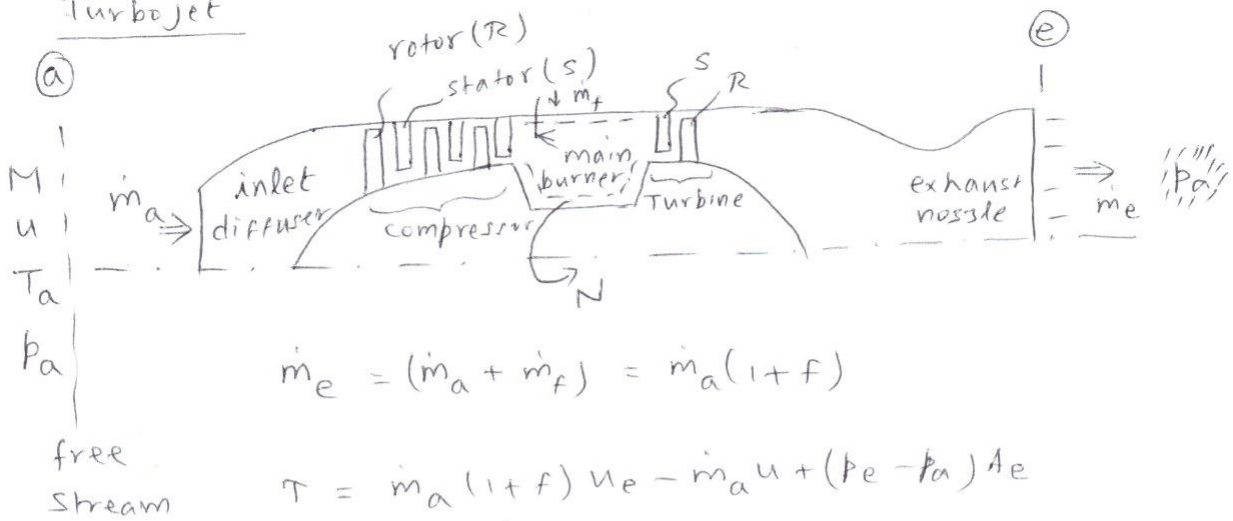 Turbojet
rotor (R)
stator (S)
ṁf
S
R
a
e
M
u
Ta
pa
ṁa
inlet
diffuser
compressor
main
burner
Turbine
N
exhaust
nozzle
ṁe
pa
ṁe = (ṁa + ṁf) = ṁa(1+f)
free
stream
T = ṁa (1+f) ue − ṁa u + (pe − pa) Ae